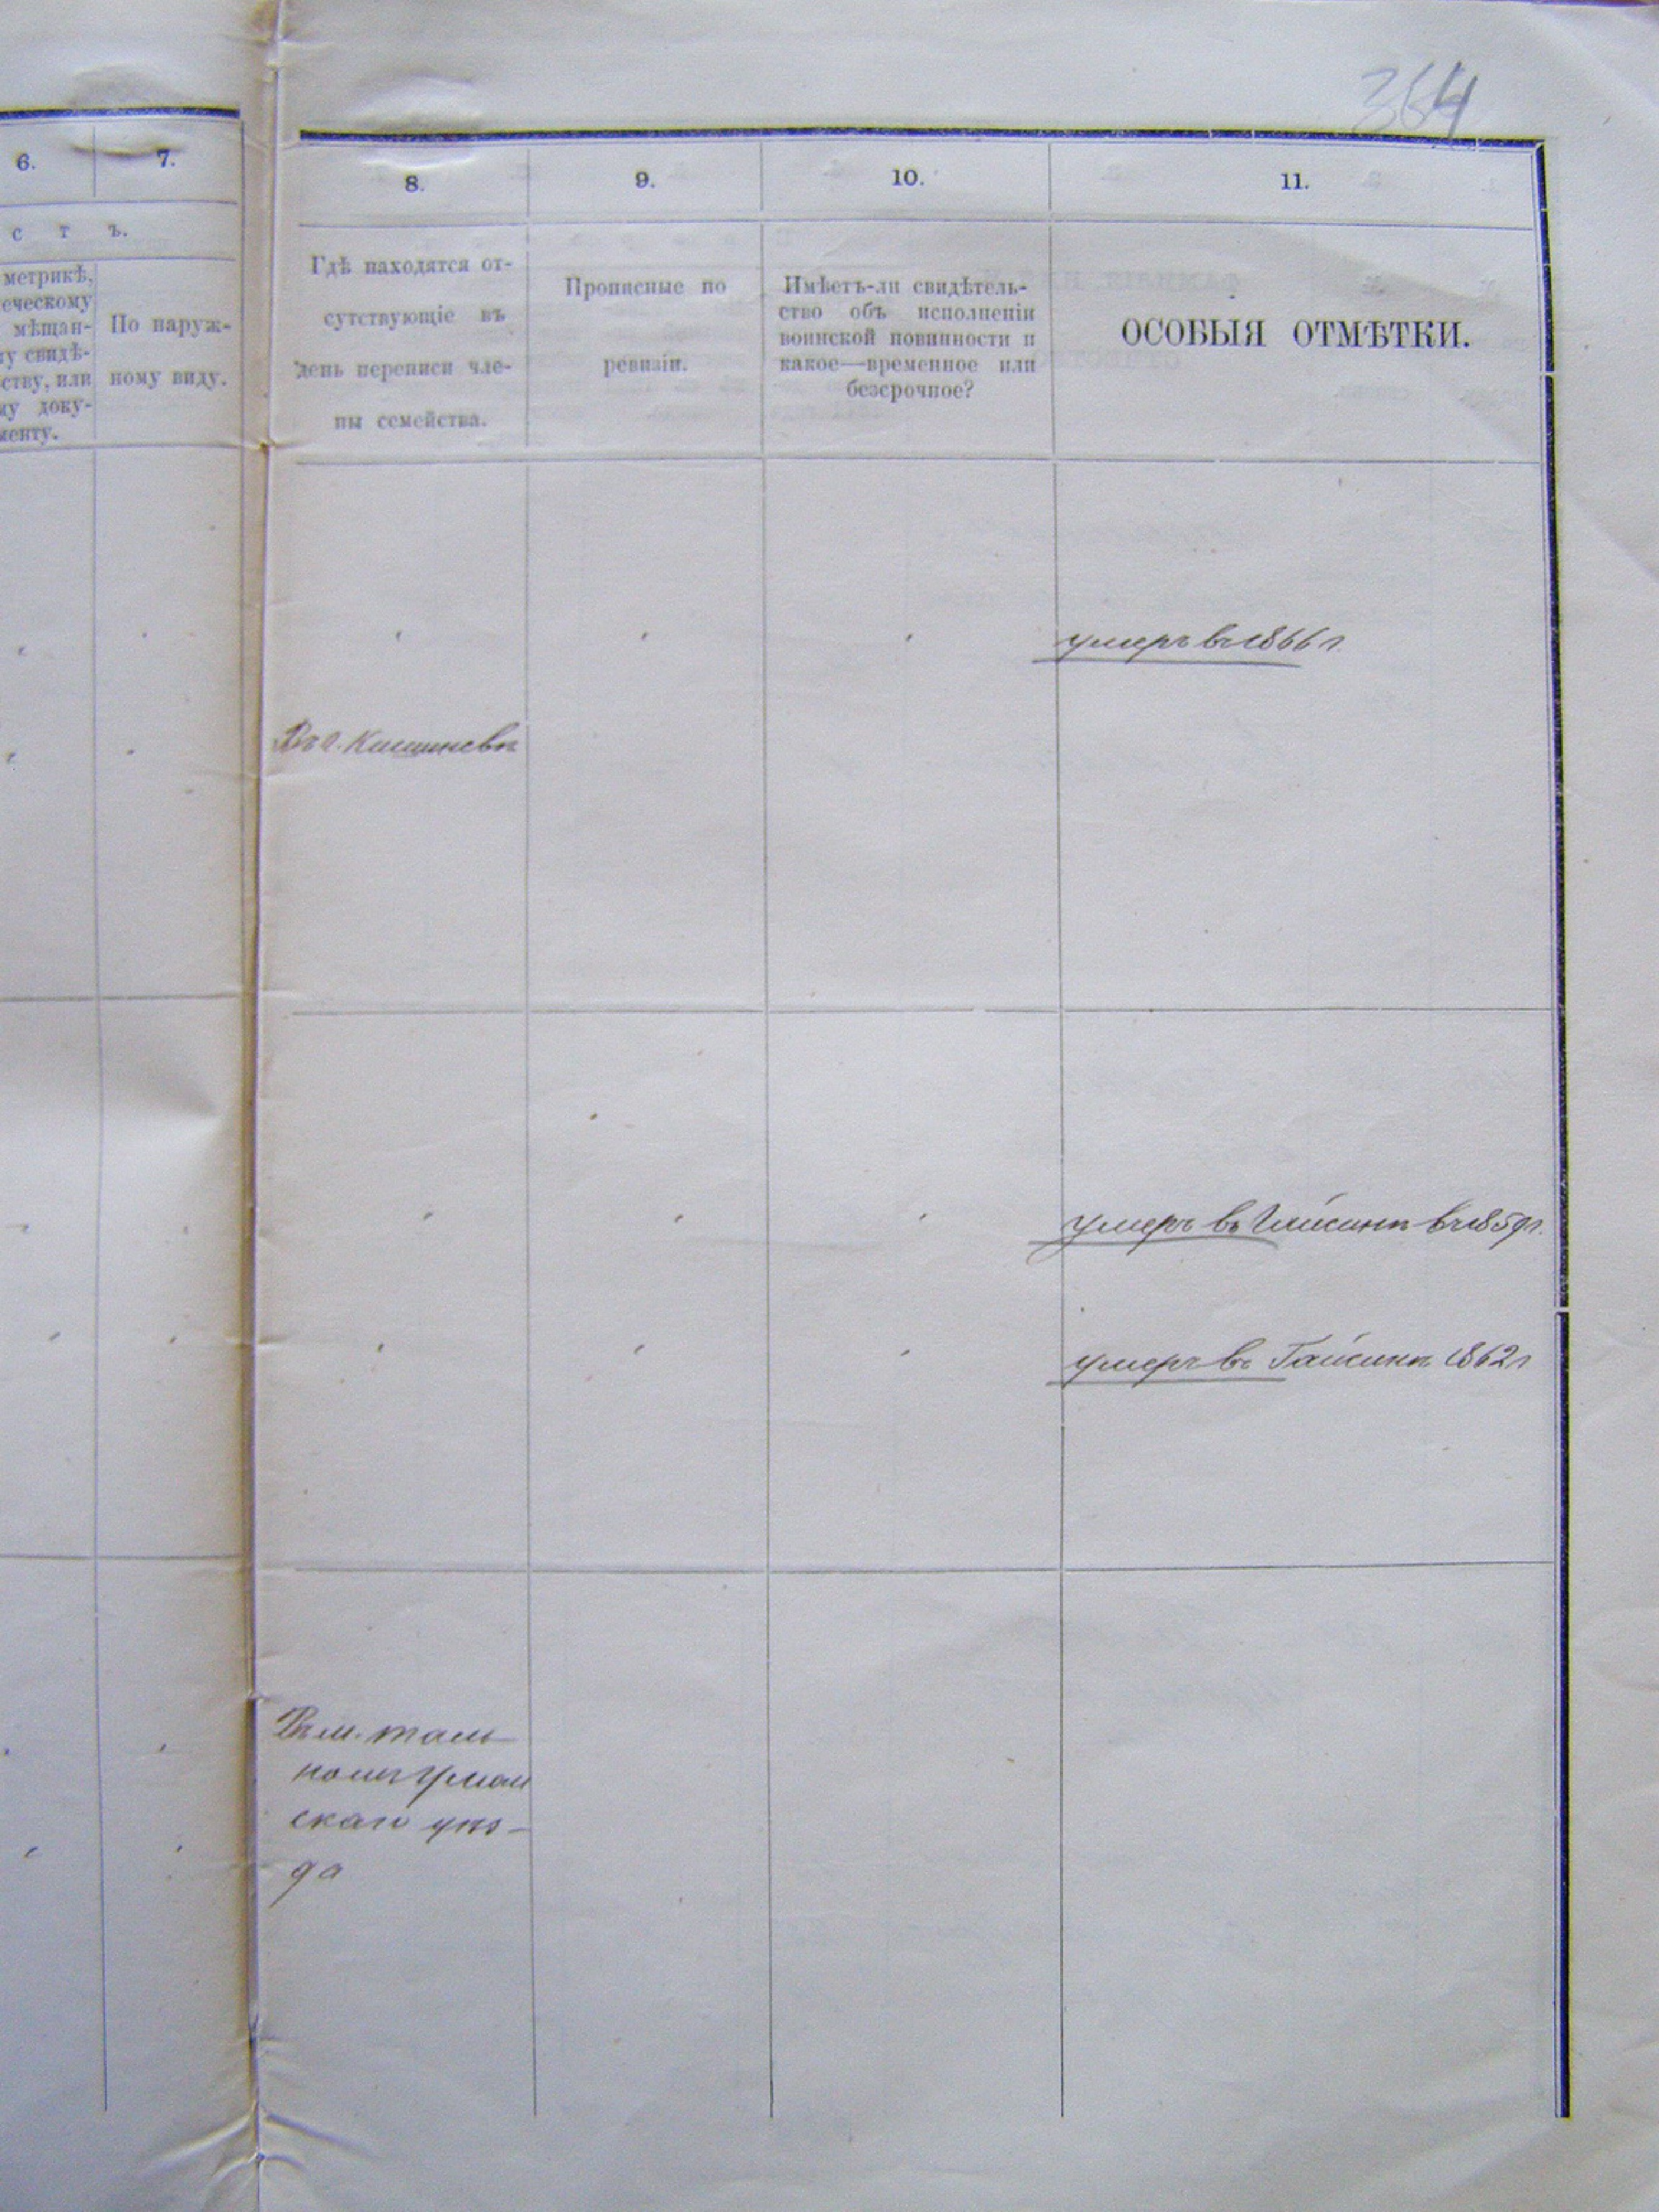 364
6.
7.
с т ъ.
метрикѣ,
еческому
мѣщан-
му свидѣ-
ству, или
му доку-
менту.
По наруж-
ному виду.
8.
9.
10.
11.
Гдѣ находятся от-
сутствующіе въ
день переписи чле-
ны семейства.
Прописные по
ревизіи.
Имѣетъ-ли свидѣтель-
ство объ исполненіи
воинской повинности и
какое—временное или
безсрочное?
ОСОБЫЯ ОТМѢТКИ.
умеръ въ 1866 г.
Въ г. Кишиневѣ
умеръ въ Гайсинѣ въ 1859 г.
умеръ въ Гайсинѣ 1862 г
Въ м. Таль-
номъ Уман
скаго уѣз-
да